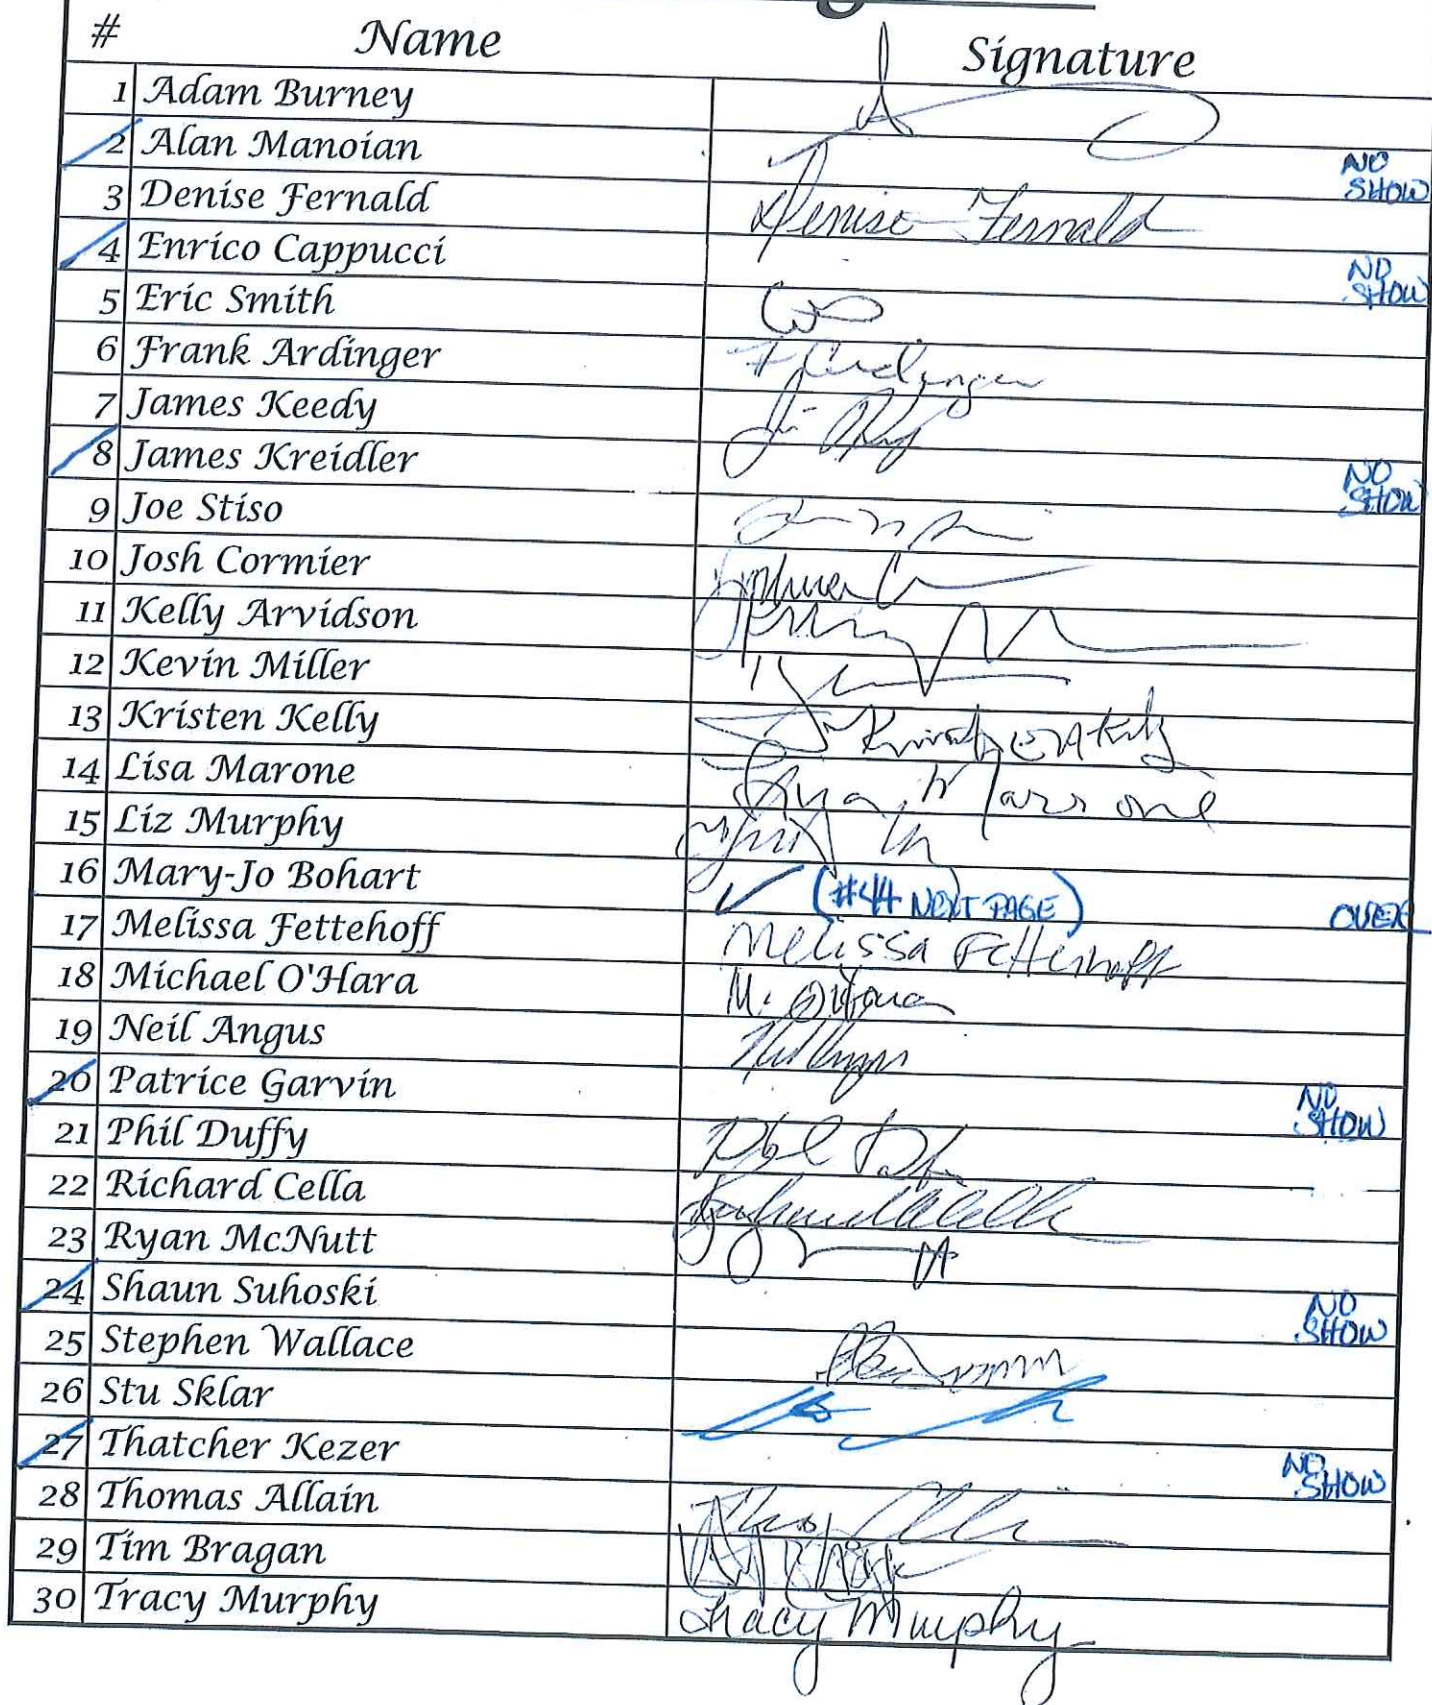 # Name Signature
1 Adam Burney
2 Alan Manoian NO SHOW
3 Denise Fernald Denise Fernald
4 Enrico Cappucci NO SHOW
5 Eric Smith
6 Frank Ardinger F Ardinger
7 James Keedy
8 James Kreidler NO SHOW
9 Joe Stiso
10 Josh Cormier
11 Kelly Arvidson
12 Kevin Miller
13 Kristen Kelly
14 Lisa Marone
15 Liz Murphy
16 Mary-Jo Bohart ✓ (#44 NEXT PAGE) OVER
17 Melissa Fettehoff Melissa Fetterhoff
18 Michael O'Hara M. O'Hara
19 Neil Angus
20 Patrice Garvin NO SHOW
21 Phil Duffy
22 Richard Cella
23 Ryan McNutt
24 Shaun Suhoski NO SHOW
25 Stephen Wallace
26 Stu Sklar
27 Thatcher Kezer NO SHOW
28 Thomas Allain
29 Tim Bragan
30 Tracy Murphy Tracy Murphy